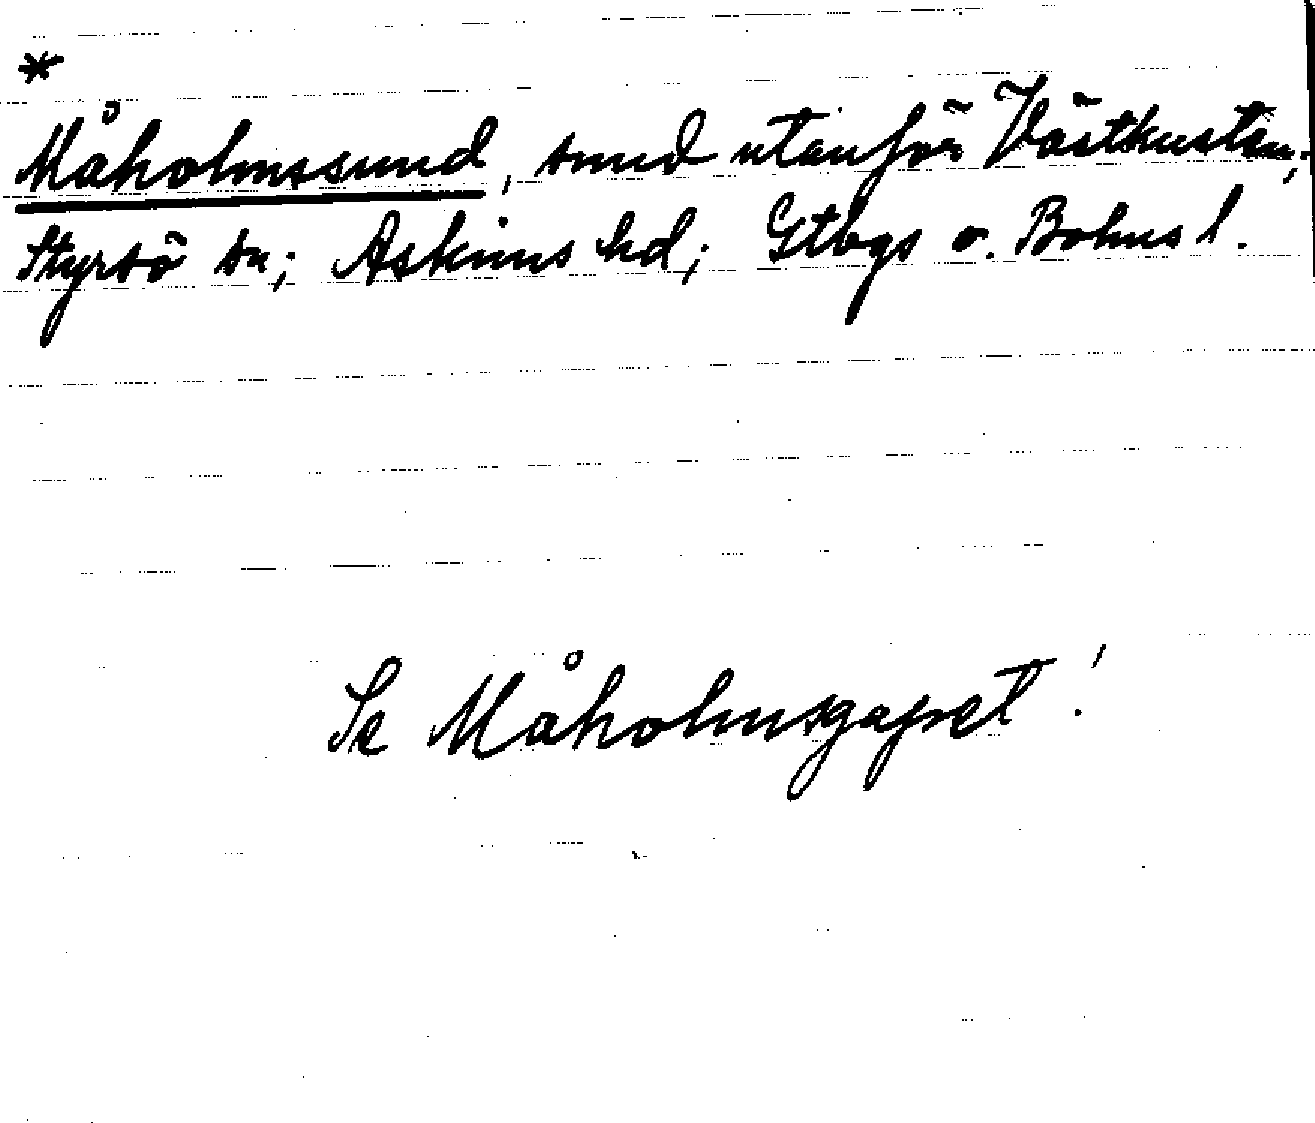 *
Måholmssund, sund utanför Västkusten;
Styrsö sn; Askims hd; Gtbgs o. Bohus l.
Se Måholmsgapet!